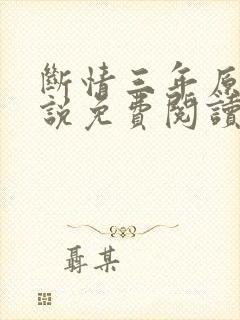 斷情三年原
說免費閱讀
聶某